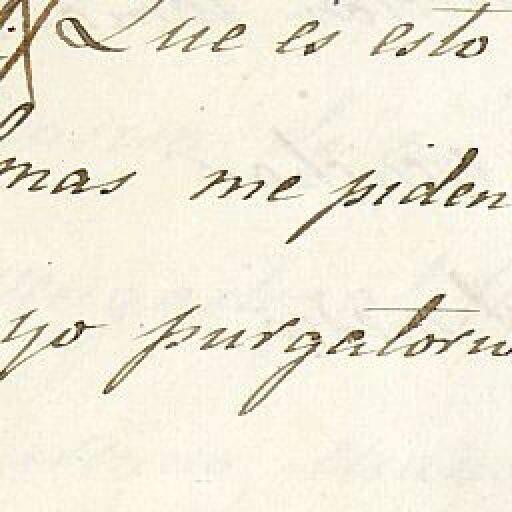 Que es esto
mas me piden
yo purgatorio